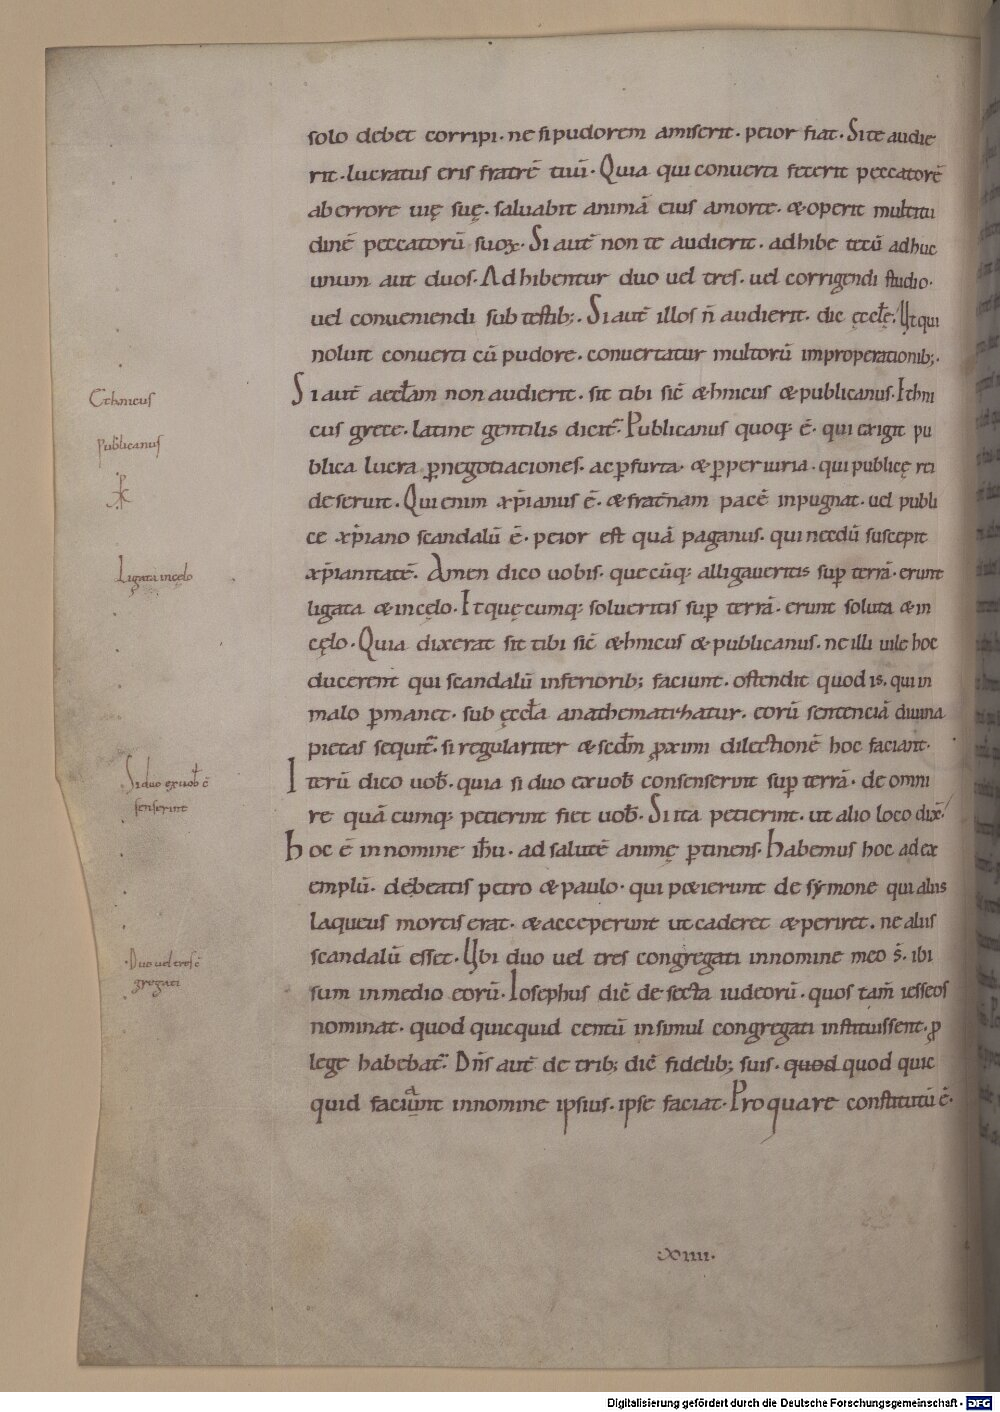 solo debet corripi. ne si pudorem amiserit. peior fiat. Si te audie
rit. lucratus eris fratrē tuū. Quia qui conuerti fecerit peccatorē
ab errore uię suę. saluabit animā eius a morte. & operit multitu
dinē peccatorū suoꝝ. Si autē non te audierit. adhibe tecū adhuc
unum aut duos. Adhibentur duo uel tres. uel corrigendi studio.
uel conueniendi sub testib;. Si autē illos n̄ audierit. dic ęccłę. Ut qui
noluit conuerti cū pudore. conuertatur multorū improperationib;.
Ethnicus
Si autē aeccłam non audierit. sit tibi sic̄ &hnicus & publicanus. Ethni
cus grece. latine gentilis dicit̄. Publicanus quoq; ē. qui exigit pu
Publicanus
blica lucra ꝑ negotiaciones. ac ꝑ furta. & ꝑ periuria. qui publicę rei
deseruit. Qui enim xp̄ianus ē. & frat̄nam pacē inpugnat. uel publi
ce xp̄iano scandalū ē. peior est quā paganus. qui necdū suscepit
xp̄ianitatē. Amen dico uobis. quecūq; alligaueritis sup̄ terrā. erunt
Ligata in cęlo
ligata & in cęlo. Et quęcumq; solueritis sup̄ terrā. erunt soluta & in
cęlo. Quia dixerat sit tibi sic̄ &hnicus & publicanus. ne illi uile hoc
ducerent qui scandalū inferiorib; faciunt. ostendit quod is. qui in
malo ꝑmanet. sub ęccła anathematizhatur. eorū sentenciā diuina
pietas sequit̄. si regulariter & scd̄m ꝓximi dilectionē hoc faciant.
Si duo ex uob̄ c̄
senserint
Iterū dico uob̄. quia si duo ex uob̄ consenserint sup̄ terrā. de omni
re quācumq; petierint fiet uob̄. Si ita petierint. ut alio loco dix̄.
Hoc ē in nomine ih̄u. ad salutē animę ꝑtinens. Habemus hoc ad ex
emplū. de beatis petro & paulo. qui p&ierunt de symone qui aliis
laqueus mortis erat. & acceperunt ut caderet & periret. ne aliis
Duo uel tres c̄
gregati
scandalū esset. Ubi duo uel tres congregati in nomine meo s̄. ibi
sum in medio eorū. Iosephus dic̄ de secta iudeorū. quos tam̄ iesseos
nominat. quod quicquid centū insimul congregati instituissent. ꝓ
lege habebat̄. Dn̄s autē de trib; dic̄ fidelib; suis. quod quod quic
quid faciunt in nomine ipsius. ipse faciat. Pro quare constitutū ē.
xxiiii.
Digitalisierung gefördert durch die Deutsche Forschungsgemeinschaft - DFG